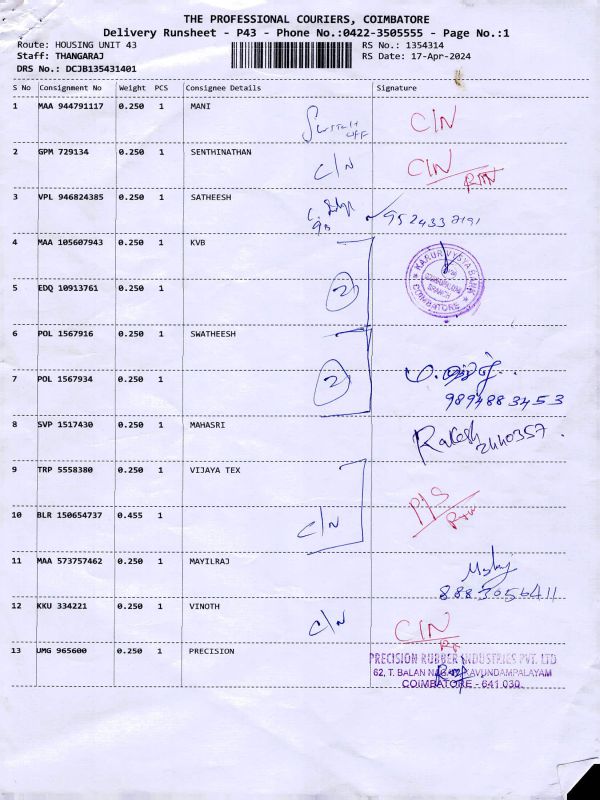 THE PROFESSIONAL COURIERS, COIMBATORE
Delivery Runsheet - P43 - Phone No.:0422-3505555 - Page No.:1
Route: HOUSING UNIT 43 RS No.: 1354314
Staff: THANGARAJ RS Date: 17-Apr-2024
DRS No.: DCJB135431401
S No Consignment No Weight PCS Consignee Details Signature
1 MAA 944791117 0.250 1 MANI Switch off C/N
2 GPM 729134 0.250 1 SENTHINATHAN C/N C/N RTN
3 VPL 946824385 0.250 1 SATHEESH
4 MAA 105607943 0.250 1 KVB KARUR VYSYA BANK COIMBATORE
5 EDQ 10913761 0.250 1 2
6 POL 1567916 0.250 1 SWATHEESH
7 POL 1567934 0.250 1 2
9894883453
8 SVP 1517430 0.250 1 MAHASRI Rakesh 2440357.
9 TRP 5558380 0.250 1 VIJAYA TEX P/S
10 BLR 150654737 0.455 1 C/N
11 MAA 573757462 0.250 1 MAYILRAJ
8883056411
12 KKU 334221 0.250 1 VINOTH C/N C/N
13 UMG 965600 0.250 1 PRECISION PRECISION RUBBER INDUSTRIES PVT. LTD
62, T. BALAN NAGAR, KAVUNDAMPALAYAM
COIMBATORE - 641 030.